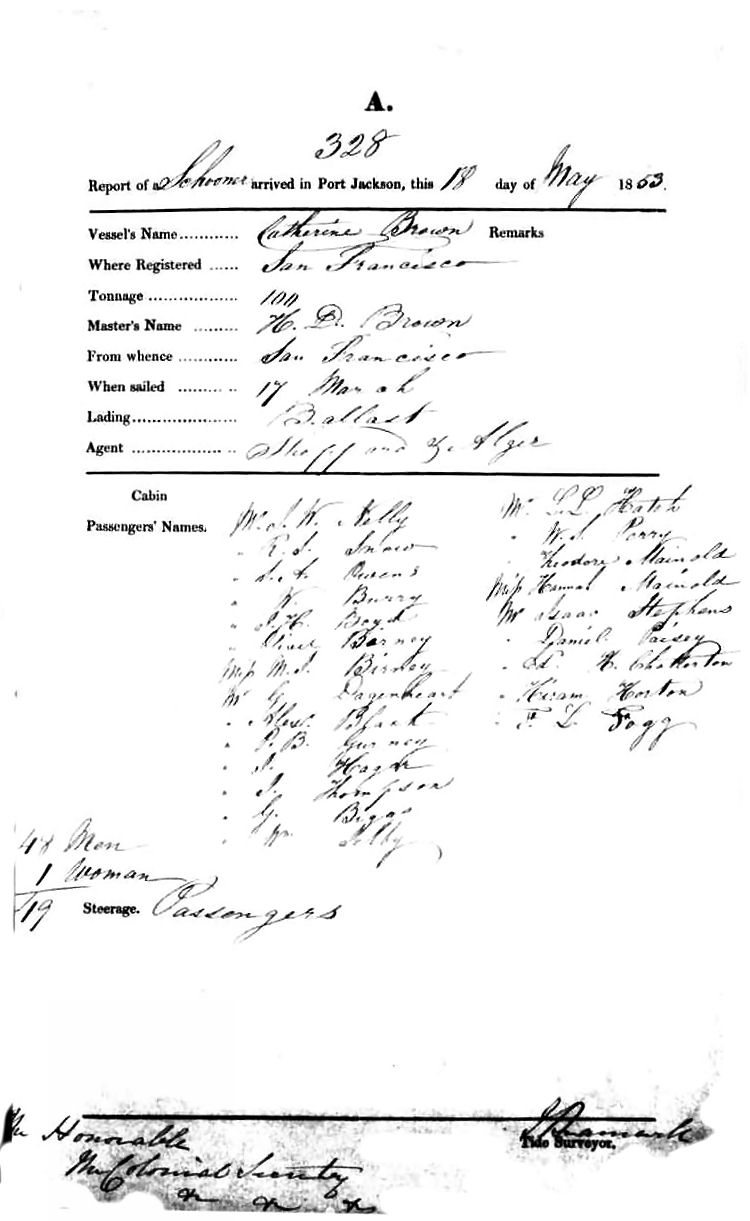 A.
328
Report of a Schooner arrived in Port Jackson, this 18 day of May 1853.
Vessel's Name............ Catherine Brown Remarks
Where Registered ...... San Francisco
Tonnage .................. 100
Master's Name ......... H. D. Brown
From whence ............ San Francisco
When sailed ............ 17 March
Lading..................... Ballast
Agent ..................... & Alger
Cabin
Passengers' Names.
Mr. J. W. Nelly
" R. J. Snow
" Owens
" W. Burry
" J. H. Boyd
" Oliver Birney
Miss M. J. Birney
Mr G. Dagenheart
" Alexr. Blank
" P. B. Gurney
" J. Hager
" J. Thompson
" G. Biggs
" Wm Selby
Mr L. L. Hatch
" W. J. Perry
" Theodore Mainold
Miss Hannah Mainold
Mr Isaac Stephens
" Daniel Paisey
" H. Chatterton
" Hiram Horton
" F. L. Fogg
48 Men
1 Woman
49 Steerage. Passengers
Tide Surveyor.
The Honorable
The Colonial Secretary
&c &c &c